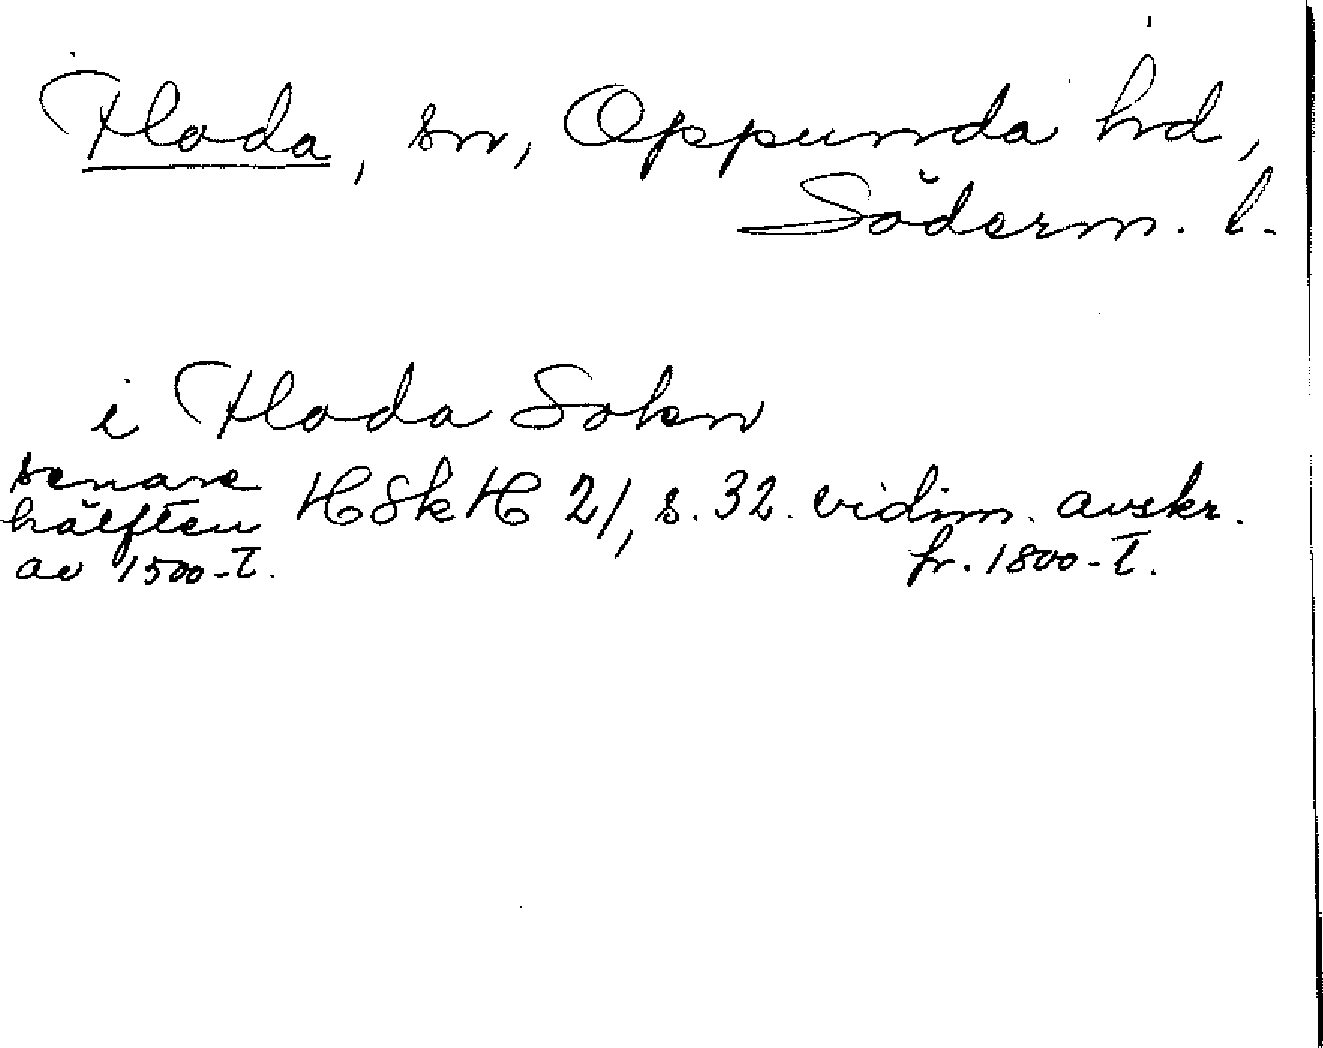 Floda, sn, Oppunda hd,
Söderm. l.
i Floda Sokn
senare
hälften HSkH 21, s. 32. vidim. avskr.
av 1500-t. fr. 1800-t.